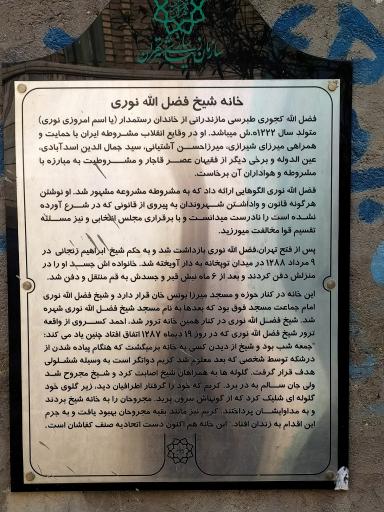 سازمان زیباسازی شهر تهران
خانه شیخ فضل الله نوری
فضل الله کجوری طبرسی مازندرانی از خاندان رستمدار (با اسم امروزی نوری)
متولد سال ۱۲۲۲ه.ش میباشد. او در وقایع انقلاب مشروطه ایران با حمایت و
همراهی میرزای شیرازی، میرزاحسن آشتیانی، سید جمال الدین اسدآبادی،
عین الدوله و برخی دیگر از فقیهان عصر قاجار و مشروطیت به مبارزه با
مشروطه و هواداران آن برخاست.
فضل الله نوری الگوهایی ارائه داد که به مشروطه مشروعه مشهور شد. او نوشتن
هرگونه قانون و واداشتن شهروندان به پیروی از قانونی که در شرع آورده
نشده است را نادرست میدانست و با برقراری مجلس انتخابی و نیز مسئله
تقسیم قوا مخالفت میورزید.
پس از فتح تهران،فضل الله نوری بازداشت شد و به حکم شیخ ابراهیم زنجانی در
۹ مرداد ۱۲۸۸ در میدان توپخانه به دار آویخته شد. خانواده اش جسد او را در
منزلش دفن کردند و بعد از ۶ ماه نبش قبر و جسدش به قم منتقل و دفن شد.
این خانه در کنار حوزه و مسجد میرزا یونس خان قرار دارد و شیخ فضل الله نوری
امام جماعت مسجد فوق بود که بعدها به نام مسجد شیخ فضل الله نوری شهره
شد. شیخ فضل الله نوری در کنار همین خانه ترور شد. احمد کسروی از واقعه
ترور شیخ فضل الله نوری که در روز ۱۹ دیماه ۱۲۸۷ اتفاق افتاد چنین یاد می کند:
"جمعه شب بود و شیخ از دیدن کسی به خانه برمیگشت که هنگام پیاده شدن از
درشکه توسط شخصی که بعد معلوم شد کریم دواتگر است به وسیله ششلولی
هدف قرار گرفت. گلوله ها به همراهان شیخ اصابت کرد و شیخ مجروح شد
ولی جان سالم به در برد. کریم که خود را گرفتار اطرافیان دید، زیر گلوی خود
گلوله ای شلیک کرد که از گونهاش بیرون پرید. مجروحان را به خانه شیخ بردند
و به مداوایشان پرداختند. کریم نیز مانند بقیه مجروحان بهبود یافت و به جرم
این اقدام به زندان افتاد. این خانه هم اکنون دست اتحادیه صنف کفاشان است.